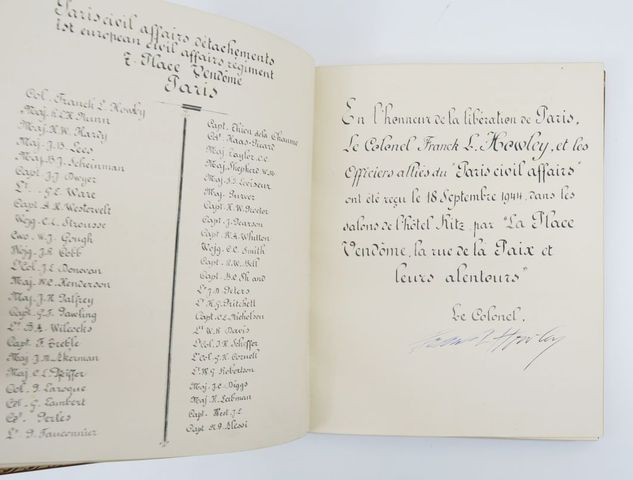 Paris civil affairs détachements
1st european civil affairs regiment
7. Place Vendôme
Paris
Col. Franck L. Howley
Maj. Nunn
Maj. R.W. Hardy
Maj. J.B. Lees
Maj. B.J. Scheinman
Capt. J.J. Dwyer
Lt. G.E. Ware
Capt. A.R. Westervelt
Wojg. C.L. Strousse
Cwo. W.J. Gough
Wojg. J.R. Cobb
Lt Col. J.L. Donovan
Maj. W.C. Henderson
Maj. J.H. Palfrey
Capt. G.J. Pawling
Lt. B.A. Wilcocks
Capt. F. Treble
Maj. J.N. Akerman
Maj. C.L. Pfiffer
Col. P. Laroque
Col. G. Lambert
Perles
Lt. P. Fauconnier
Capt. Thion de la Chaume
Haas-Picard
Maj. Taylor. C.C.
Maj. Shepherd
Maj. Leviseur
Maj. Purver
Capt. R.W. Procter
Capt. J. Pearson
Capt. R.A. Whitton
Wojg. C.C. Smith
Capt. Bell
Capt. B.C. Shand
Lt. J.D. Peters
Lt. H.G. Pritchett
Capt. C.L. Nicholson
Lt. W.R. Davis
Lt Col. J.N. Schiffer
Lt Col. G.K. Cornell
Lt. W.G. Robertson
Maj. J.C. Diggs
Maj. N. Leibman
Capt. West. J.E.
Capt. Blessi
En l'honneur de la libération de Paris,
Le Colonel Franck L. Howley, et les
Officiers alliés du "Paris civil affairs"
ont été reçu le 18 Septembre 1944, dans les
salons de l'hôtel Ritz, par "La Place
Vendôme, la rue de la Paix et
leurs alentours"
Le Colonel.